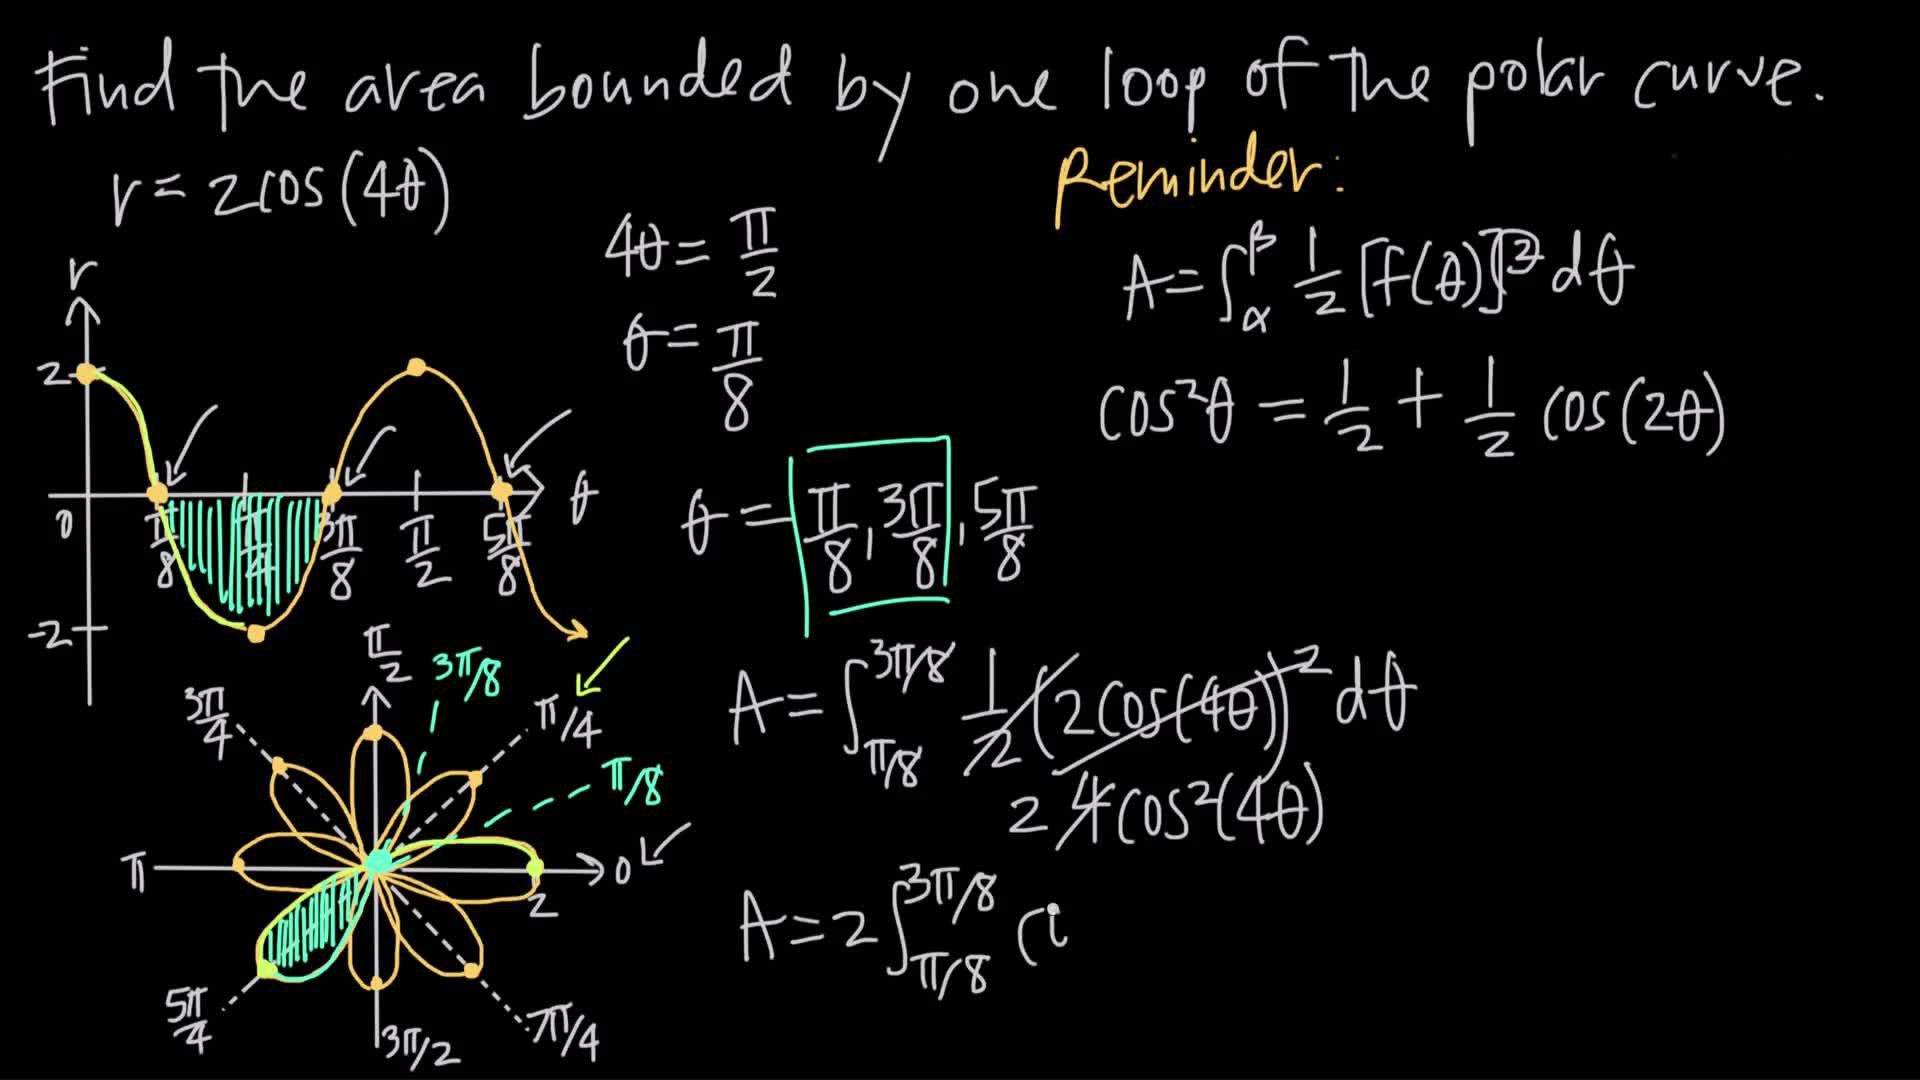 Find the area bounded by one loop of the polar curve.
r = 2cos(4θ)
Reminder:
A = ∫_α^β 1/2 [f(θ)]² dθ
cos²θ = 1/2 + 1/2 cos(2θ)
4θ = π/2
θ = π/8
θ = π/8, 3π/8, 5π/8
r
2
0
-2
π/8
π/4
3π/8
π/2
5π/8
θ
π/2
3π/8
π/4
π/8
3π/4
π
0
2
5π/4
3π/2
7π/4
A = ∫_{π/8}^{3π/8} 1/2 (2cos(4θ))² dθ
2 4cos²(4θ)
A = 2 ∫_{π/8}^{3π/8} (